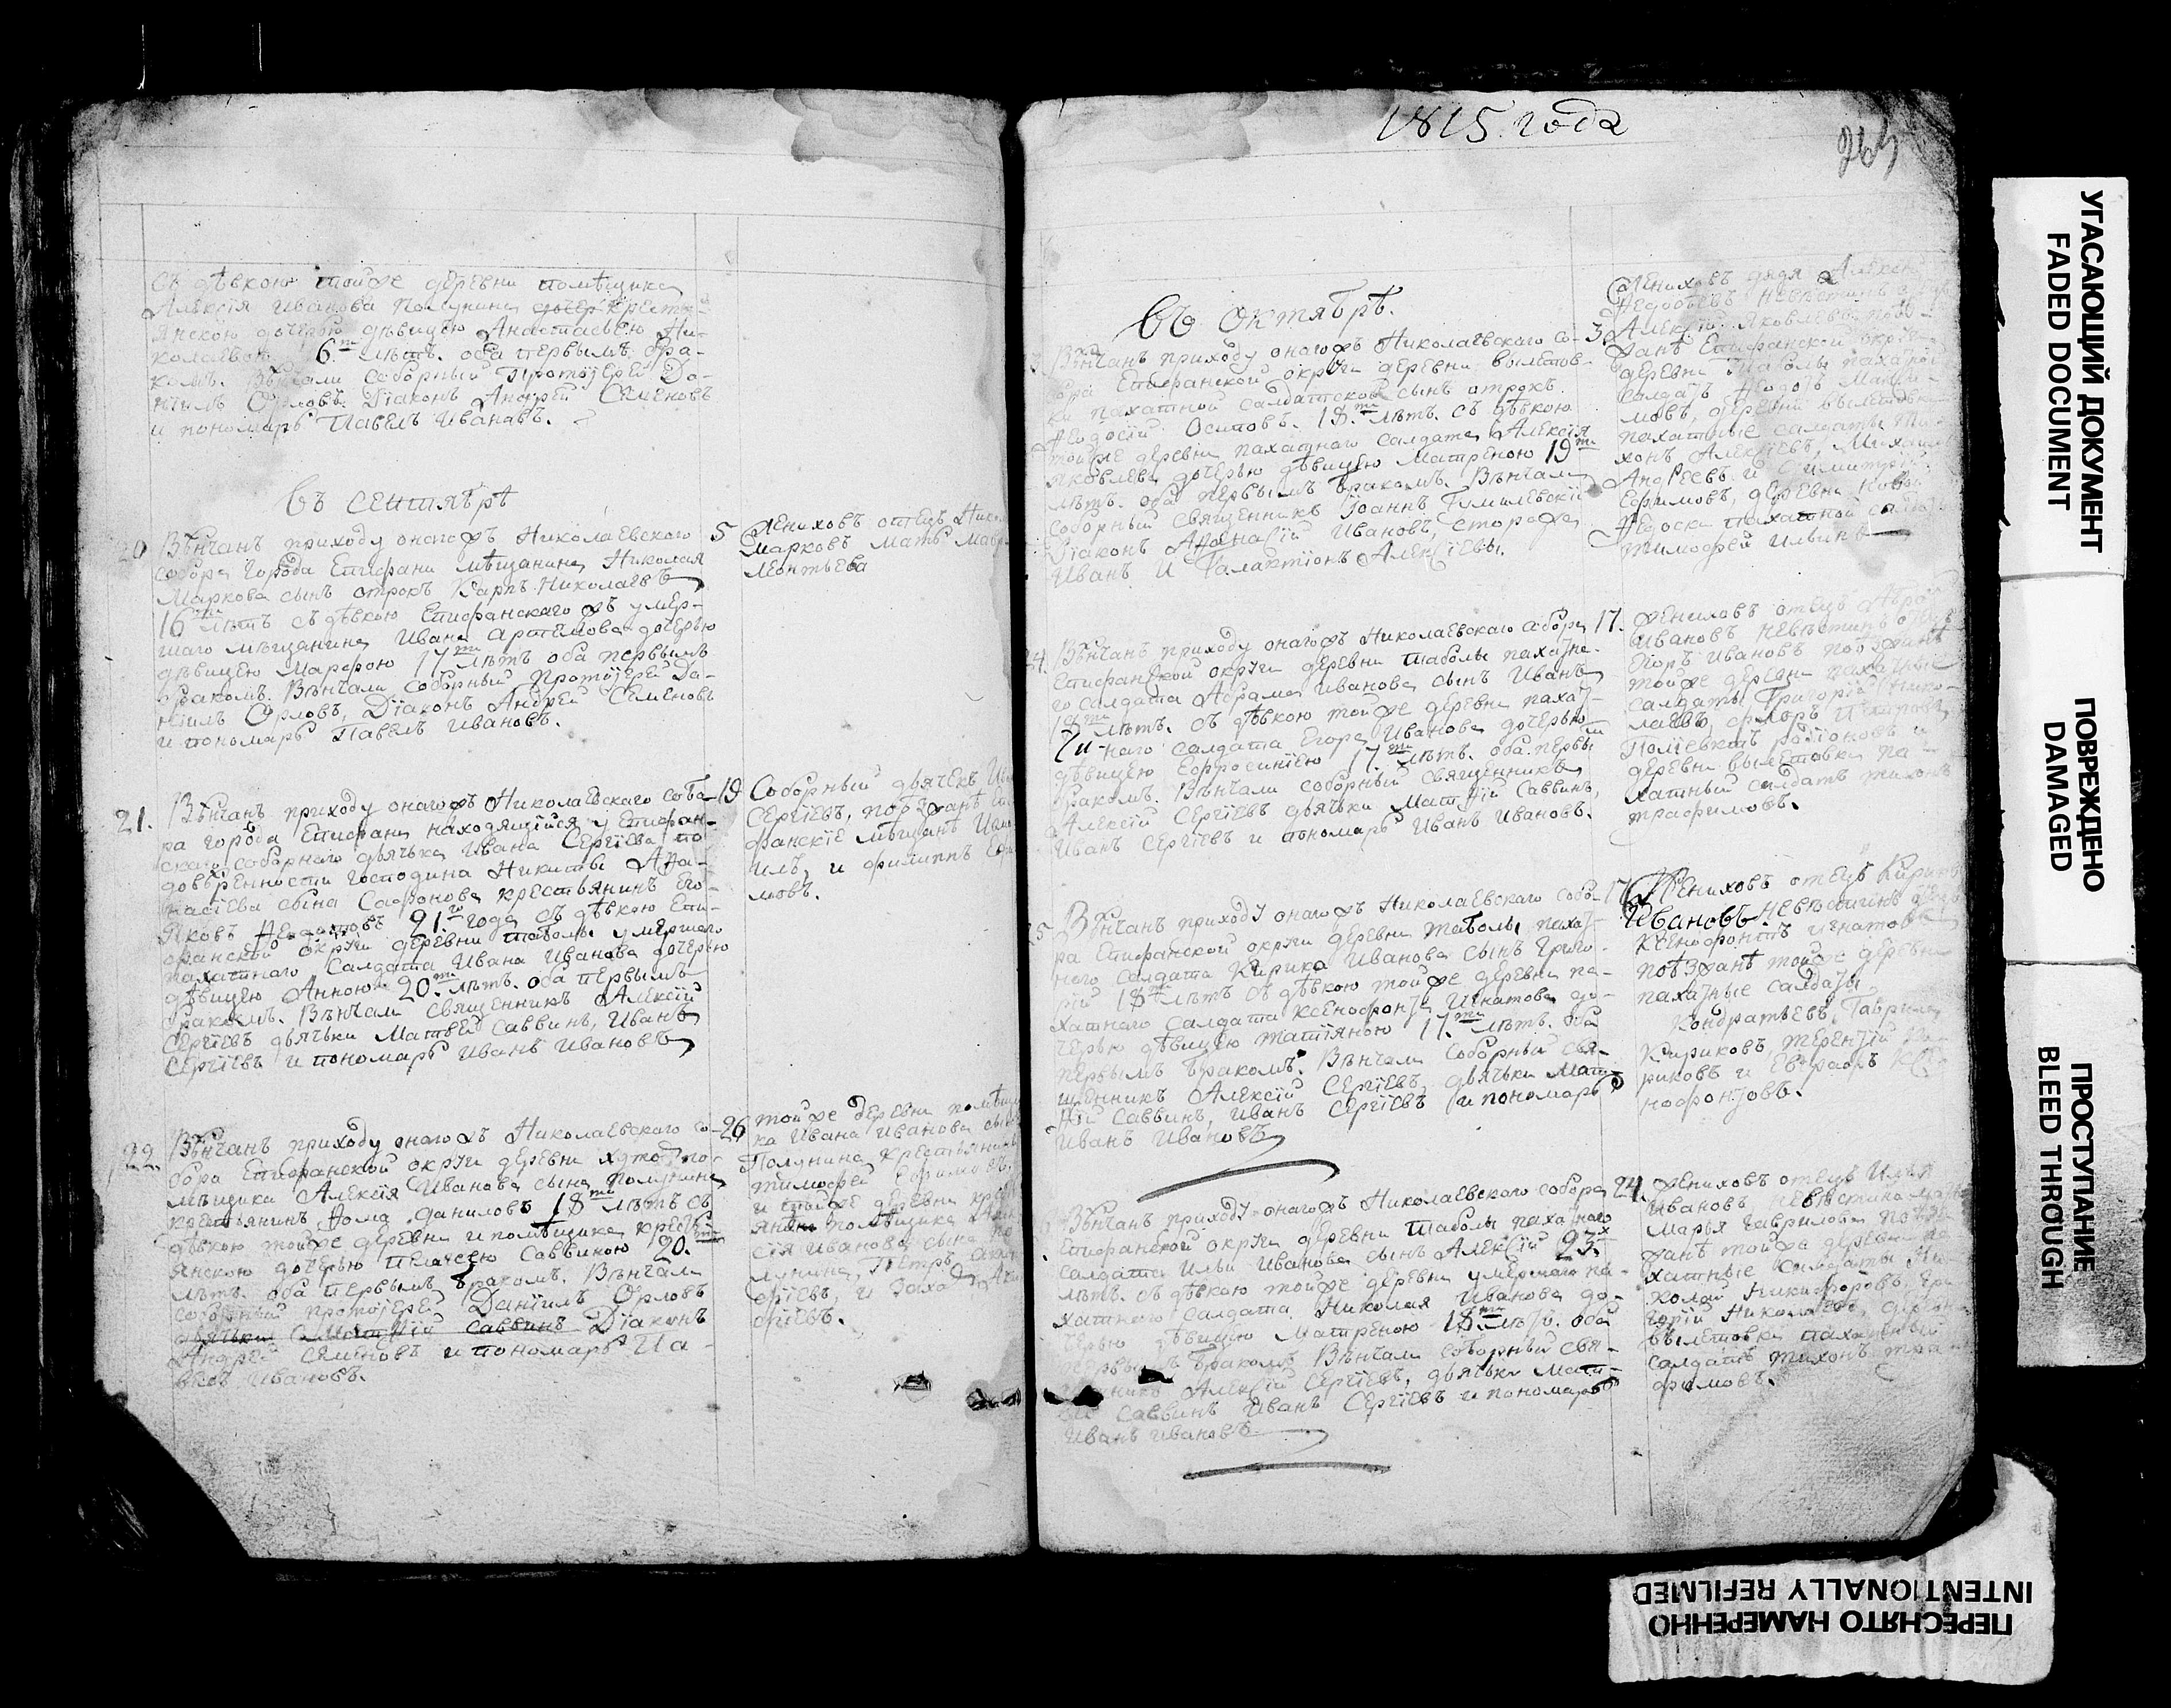 съ дѣвкою тойже деревни помѣщика
Алексія Иванова Полунина дочер крестья-
янскою дочерью дѣвицею Анастасьею Ни-
колаевою 16ти лѣтъ. оба первымъ бра-
комъ. Вѣнчали соборный Протоіерей Да-
ніилъ Орловъ. Діаконъ Андрей Семеновъ
и пономарь Павелъ Ивановъ.
Въ сентябрѣ
20 Вѣнчанъ приходу онагожъ Николаевского
собора города Епифани мѣщанина Николая
Маркова сынъ отрокъ Карпъ Николаевъ
16ти лѣтъ съ дѣвкою Епифанскагожъ умер-
шаго мѣщанина Ивана Артемова дочерью
дѣвицею Марфою 17ти лѣтъ оба первымъ
бракомъ. Вѣнчали соборный Протоіерей Да-
ніилъ Орловъ, Діаконъ Андрей Семеновъ
и пономарь Павелъ Ивановъ.
5 Жениховъ отецъ
Марковъ мать
Леонтьева
21. Вѣнчанъ приходу онагожъ Николаевского собо-
ра города Епифани находящійся у Епифан-
скаго соборнаго дьячька Ивана Сергіева по
довѣренности господина Никиты Афа-
насіева сына Сафонова крестьянинъ Его-
Яковъ 21го года съ дѣвкою Епи-
фанской округи деревни Таболы умершаго
пахатного Салдата Ивана Иванова дочерью
дѣвицею Анною 20ти лѣтъ. оба первымъ
бракомъ. Вѣнчали Священникъ Алексій
Сергіевъ дьячьки Матвей Саввинъ, Иванъ
Сергіевъ и пономарь Иванъ Ивановъ
19 Соборный дьячекъ
Сергіевъ, поѣзжанѣ
фанскіе мѣщанѣ
илъ, и филиппъ
мовъ.
22. Вѣнчанъ приходу онагожъ Николаевского со-
бора Епифанской округи деревни по-
мѣщика Алексія Иванова сына Полунина
крестьянинъ Фома Даниловъ 18ти лѣтъ съ
дѣвкою тойже деревни и помѣщика кресть-
янскою дочерью Пелагеею Саввиною 20ти
лѣтъ. оба первымъ бракомъ. Вѣнчали
соборный протоіерей Даніилъ Орловъ
дьячьки Матѳій Саввинъ Діаконъ
Андрей Семеновъ и пономарь Па-
велъ Ивановъ.
26 тойже деревни
ка Ивана Иванова
Полунина крестьянинъ
тимофей Ефимовъ,
и тойже деревни
помѣщика
сія Иванова сына
лунина, Петръ
1815. года
Въ Октябрѣ.
Вѣнчанъ приходу онагожъ Николаевского со-
бора Епифанской округи деревни вылетов-
ки пахатной салдатской сынъ отрокъ
Ѳеодосій Осиповъ. 18ти лѣтъ. съ дѣвкою
тойже деревни пахатнаго салдата Алексія
Яковлева дочерью дѣвицею Матреною 19ти
лѣтъ. оба первымъ бракомъ. Вѣнчали
соборный Священникъ Іоаннъ
Діаконъ Аѳонасій Ивановъ,
Иванъ и Галактіонъ Алексіевы.
3. Жениховъ дядя
Алексій Яковлевъ
жанѣ Епифанской
деревни Таболы
солдатъ Ѳеодотъ Макси-
мовъ, деревни вылетовки
пахатные салдаты Ти-
хонъ Алексіевъ, Михаилъ
Андреевъ и Димитрій
Ефимовъ, деревни
тимофей Ильинъ
Вѣнчанъ приходу онагожъ Николаевскаго собора
Епифанской округи деревни таболы пахатна-
го салдата Абрама Иванова сынъ Иванъ
18ти лѣтъ. съ дѣвкою тойже деревни пахат-
ного салдата Егора Иванова дочерью
дѣвицею Ефросиніею 17ти лѣтъ. оба первы
бракомъ. Вѣнчали соборный священникъ
Алексій Сергіевъ дьячьки Матѳій Саввинъ,
Иванъ Сергіевъ и пономарь Иванъ Ивановъ.
17. жениховъ отецъ
Ивановъ невѣстинъ
Егоръ Ивановъ поѣзжанѣ
тойже деревни пахатные
салдаты Григорій Нико-
лаевъ,
Родіоновъ и
деревни вылетовки па-
хатный салдатъ тихонъ
трафимовъ.
Вѣнчанъ приходу онагожъ Николаевскаго собо-
ра Епифанской округи деревни таболы пахат-
ного салдата Кирика Иванова сынъ Григо-
рій 18ти лѣтъ съ дѣвкою тойже деревни па-
хатнаго салдата Ксенофонта Игнатова до-
черью дѣвицею татіяною 17ти лѣтъ. оба
первымъ бракомъ. Вѣнчали соборный свя-
щенникъ Алексій Сергіевъ, дьячьки Мат-
ѳій Саввинъ, Иванъ Сергіевъ и пономарь
Иванъ Ивановъ
17 Жениховъ отецъ Кирикъ
Ивановъ невѣстинъ
Ксенофонтъ Игнатовъ
поѣзжанѣ тойже деревни
пахатные салдаты
Кондратьевъ Гаврила
Кириковъ, терентій
риковъ и
нофонтовъ.
Вѣнчанъ приходу онагожъ Николаевскаго собора
Епифанской округи деревни таболы пахатнаго
салдата Ильи Иванова сынъ Алексій 23х
лѣтъ. съ дѣвкою тойже деревни умершаго па-
хатного салдата Николая Иванова до-
черью дѣвицею Матреною 18ти лѣтъ. оба
первымъ бракомъ Вѣнчали соборный свя-
щенникъ Алексій Сергіевъ, дьячьки Мат-
ѳій Саввинъ Иванъ Сергіевъ и пономарь
Иванъ Ивановъ
24. жениховъ отецъ Илья
Ивановъ невѣстина
Марья Гаврилова
жанѣ тойже деревни
хатные салдаты Ни-
колай Никифоровъ,
горій Николаевъ,
вылетовки пахатный
салдатъ тихонъ
фимовъ.
УГАСАЮЩИЙ ДОКУМЕНТ
FADED DOCUMENT
ПОВРЕЖДЕНО
DAMAGED
ПРОСТУПАНИЕ
BLEED THROUGH
ПЕРЕСНЯТО НАМЕРЕННО
INTENTIONALLY REFILMED